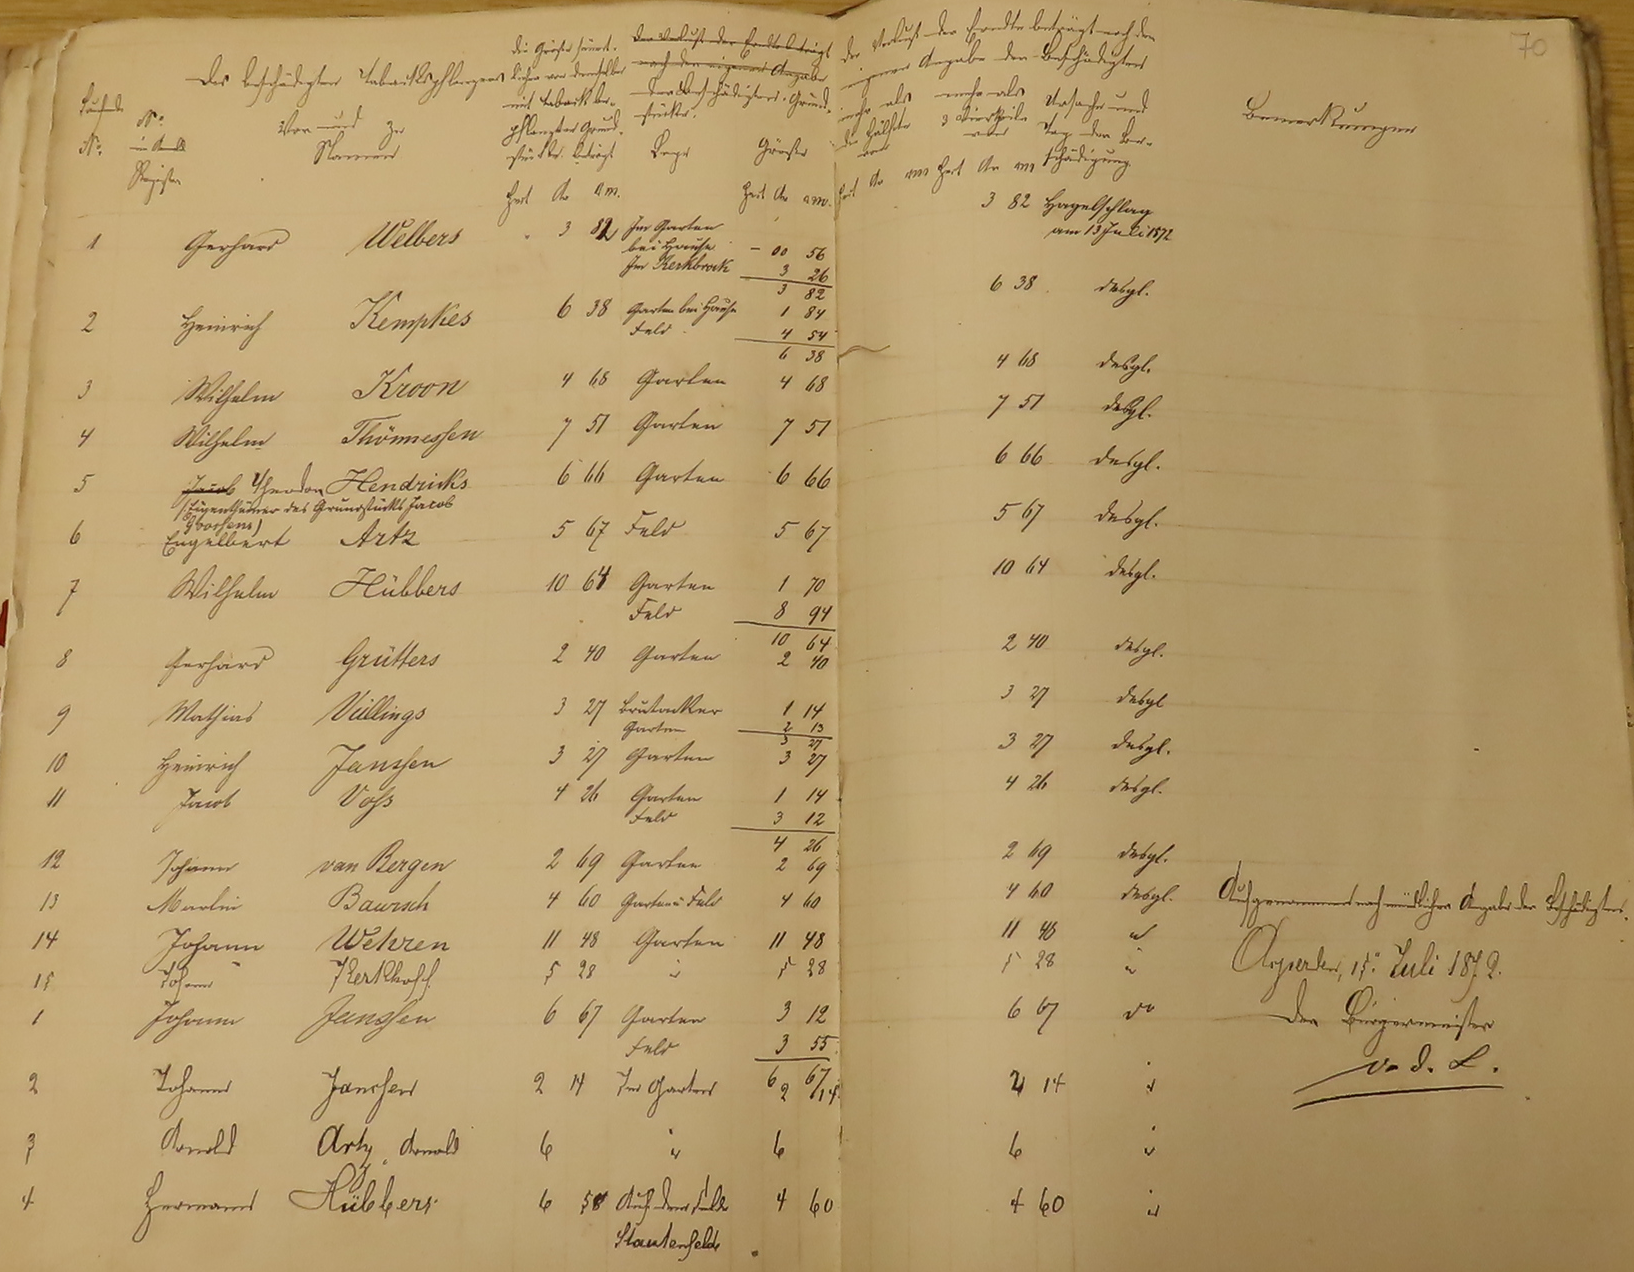 70
Des beschädigten Tabackspflanzers
Vor- und Zu
Namen
Laufende
No.
No.
Register
die Grösse
mit Taback be-
pflanzten Grund-
stücke beträgt
Der Verlust der Erndte beträgt
nach der eigenen Angabe
der Beschädigten. Grund-
stücke.
Lage Grösse
der Verlust der Erndte beträgt nach der
eigenen Angabe des Beschädigten
mehr als die Hälfte
mehr als 3 Viertheile
Ursache und
Tag der Be-
schädigung
Bemerkungen
1 Gerhard Welbers 3 82 Im Garten
bei Hause - 00 56
Im Kerkbrock 3 26
3 82
3 82 Hagelschlag
am 13 Juli 1872
2 Heinrich Kempkes 6 38 Garten bei Hause 1 84
Feld 4 54
6 38
6 38 desgl.
3 Wilhelm Kroon 4 68 Garten 4 68 4 68 desgl.
4 Wilhelm Thönnessen 7 51 Garten 7 51 7 51 desgl.
5 Jacob Theodor Hendricks 6 66 Garten 6 66 6 66 desgl.
(Eigenthümer des Grundstücks Jacob
Goossens)
6 Engelbert Artz 5 67 Feld 5 67 5 67 desgl.
7 Wilhelm Hübbers 10 64 Garten 1 70 10 64 desgl.
Feld 8 94
10 64
8 Gerhard Grütters 2 40 Garten 2 40 2 40 desgl.
9 Mathias Vüllings 3 27 Brutacker 1 14 3 27 desgl
Garten 2 13
3 27
10 Heinrich Janssen 3 27 Garten 3 27 3 27 desgl.
11 Jacob Voss 4 26 Garten 1 14 4 26 desgl.
Feld 3 12
4 26
12 Johann van Bergen 2 69 Garten 2 69 2 69 desgl.
13 Martin Baursch 4 60 Garten u Feld 4 60 4 60 desgl.
14 Johann Wehren 11 48 Garten 11 48 11 48
15 Johann Kerkhoff 5 28 " 5 28 5 28 "
1 Johann Janssen 6 67 Garten 3 12 6 67 do
Feld 3 55
6 67
2 Johann Janssen 2 14 Im Garten 2 14 2 14 "
3 Arnold Artz, Arnold 6 " 6 6 "
4 Hermann Hübbers 6 58 Auf dem Felde 4 60 4 60 "
Stautenfelde
Aufgenommen nach mündlicher Angabe der Beschädigten.
Asperden, 15. Juli 1872.
Der Bürgermeister
v. d. L.